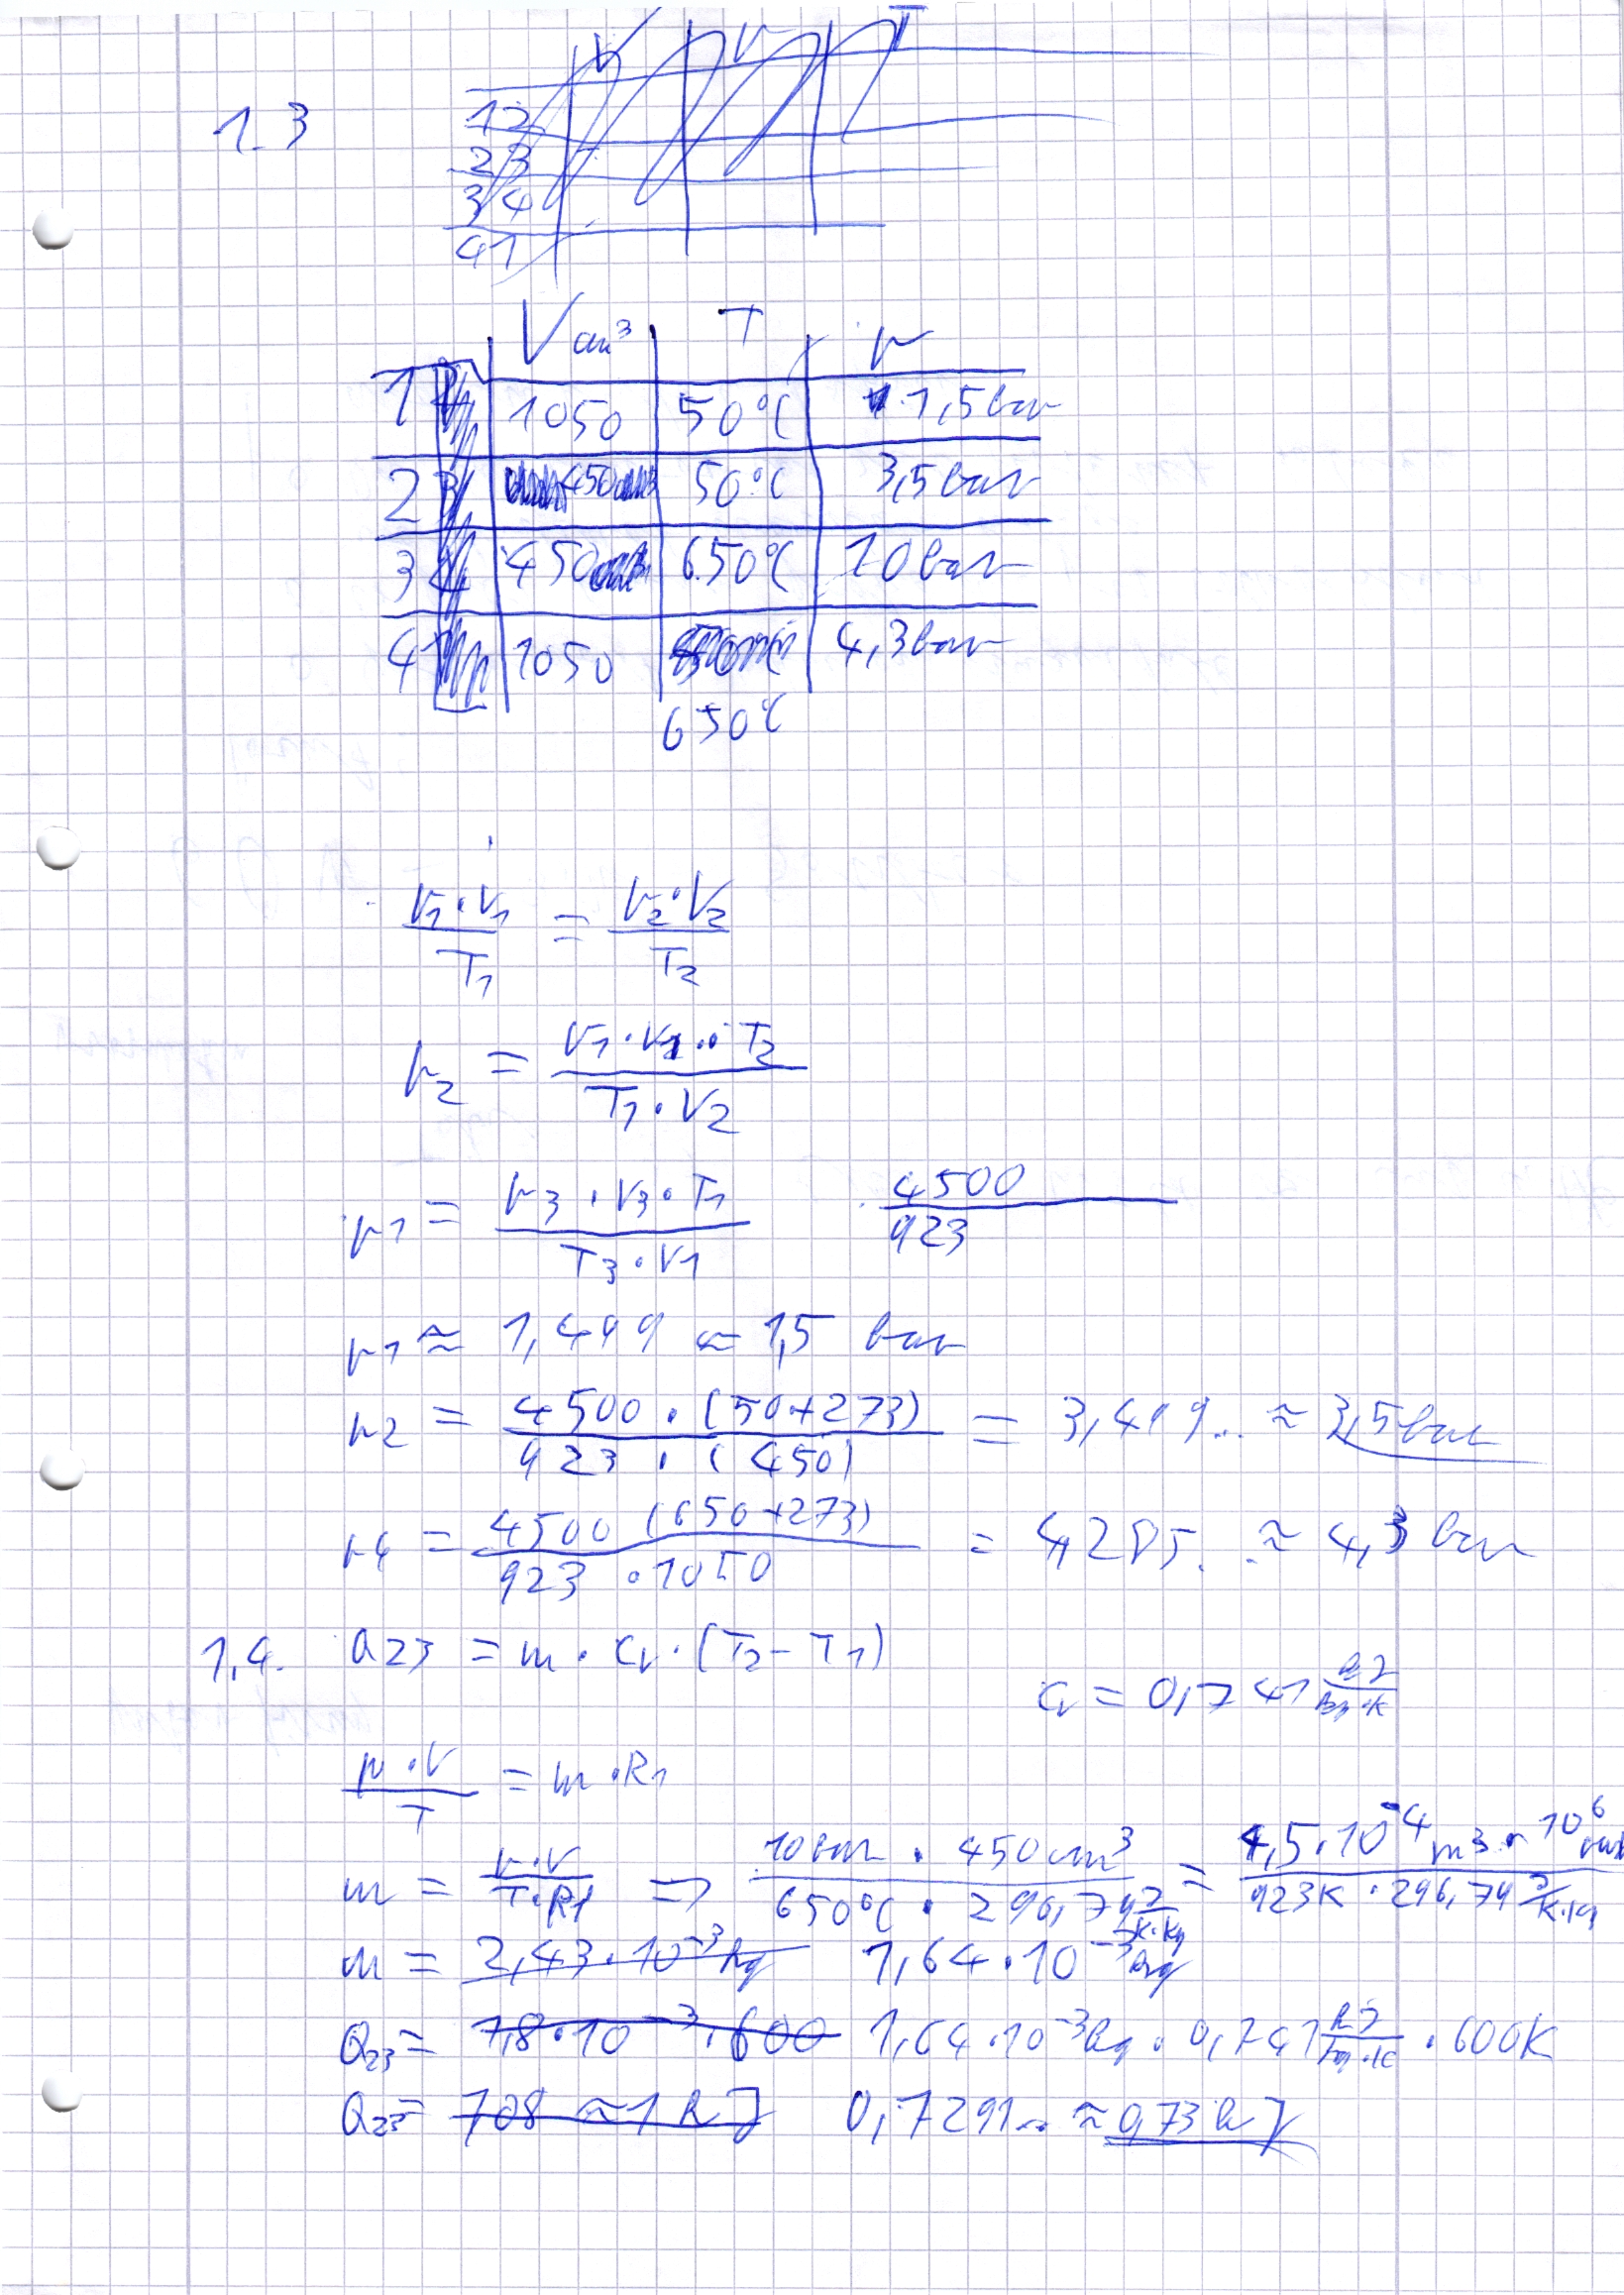 1.3
V p T
12
23
34
41
V cm³ T p
1 1050 50°C 1,5bar
2 450 50°C 3,5bar
3 450 650°C 10bar
4 1050 4,3bar
650°C
p₁·V₁/T₁ = p₂·V₂/T₂
p₂ = p₁·V₁·T₂/T₁·V₂
p₁ = p₃·V₃·T₁/T₃·V₁ 4500/923
p₁ ≈ 1,499 ≈ 1,5 bar
p₂ = 4500·(50+273)/923·(450) = 3,499.. ≈ 3,5bar
p₄ = 4500 (650+273)/923·1050 = 4,285. ≈ 4,3 bar
1,4. Q₂₃ = m·cᵥ·(T₂-T₁)
cᵥ = 0,741 kJ/kg·K
p·V/T = m·R₁
m = p·V/T·R₁ => 10bar·450cm³/650°C·296,74 J/K·kg = 4,5·10⁻⁴m³·10⁶/923K·296,74 J/K·kg
m = 2,43·10⁻³kg 1,64·10⁻³kg
Q₂₃ = 1,8·10⁻³·600 1,64·10⁻³kg·0,741 kJ/kg·K·600K
Q₂₃ = 708 ≈ 1 kJ 0,7291.. ≈ 0,73kJ